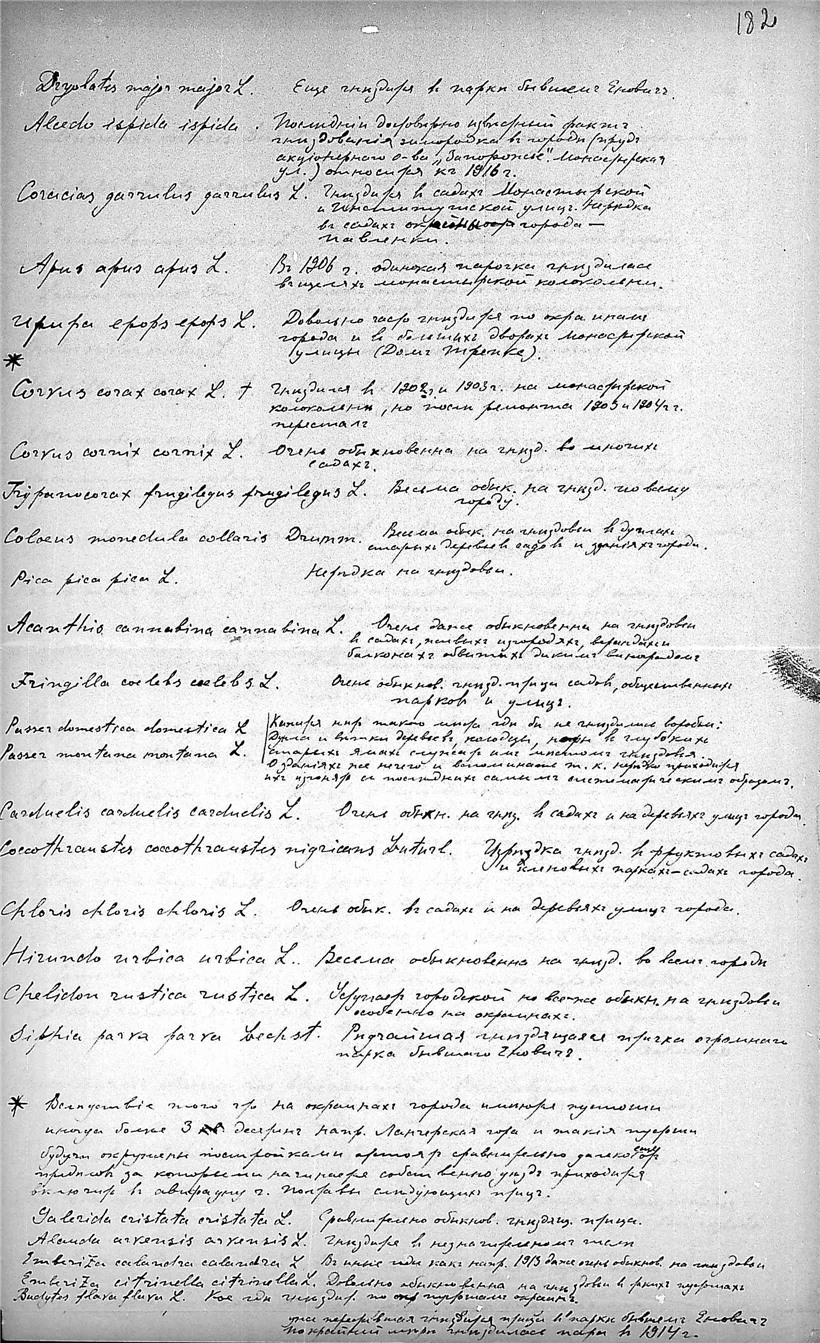 182
Dryobates major major L. Еще гнездится в парке бывшем Еновича.
Alcedo ispida ispida. Последній достоверно известный фактъ
гнездованія зимородка въ городе (прудъ
акціонернаго о-ва „Запорожье" Монастырская
ул.) относится къ 1916 г.
Coracias garrulus garrulus L. Гнездится въ садахъ Монастырской
и Институтской улицъ. Нередка
въ садахъ города —
Павленки.
Apus apus apus L. Въ 1906 г. одинокая парочка гнездилась
въ щеляхъ монастырской колокольни.
Upupa epops epops L. Довольно часто гнездится по окраинамъ
города и въ большихъ дворахъ Монастырской
улицы (Домъ Тренке).
*
Corvus corax corax L. † Гнездился въ 1902 и 1903 г. на монастырской
колокольне, но после ремонта 1903 и 1904 г.г.
пересталъ
Corvus cornix cornix L. Очень обыкновенна на гнезд. во многих
садахъ.
Trypanocorax frugilegus frugilegus L. Весьма обык. на гнезд. по всему
городу.
Coloeus monedula collaris Drumm. Весьма обык. на гнездовьи в дуплах
старыхъ деревьев садов и зданіяхъ города.
Pica pica pica L. Нередка на гнездовьи.
Acanthis cannabina cannabina L. Очень даже обыкновенна на гнездовьи
в садах, живыхъ изгородяхъ, верандах и
балконахъ обвитыхъ дикимъ виноградомъ
Fringilla coelebs coelebs L. Очень обыкнов. гнезд. птица садов, общественныхъ
парков и улицъ.
Passer domestica domestica L. Кажется нет такого места где бы не гнездились воробьи:
Passer montana montana L. Дупла и ветки деревьев, колодцы, норы в глубоких
старых ямах служат им местом гнездовья.
О зданіяхъ уже нечего и вспоминать т. к. нередко приходится
ихъ изгонять с последних самымъ систематическимъ образомъ.
Carduelis carduelis carduelis L. Очень обыкн. на гнезд. в садахъ и на деревьяхъ улицъ города.
Coccothraustes coccothraustes nigricans Buturl. Изредка гнезд. в фруктовыхъ садахъ
и кленовыхъ парках-садахъ города.
Chloris chloris chloris L. Очень обык. въ садахъ и на деревьяхъ улицъ города.
Hirundo urbica urbica L. Весьма обыкновенна на гнезд. во всем городе
Chelidon rustica rustica L. Уступает городской но все же обыкн. на гнездовьи
особенно на окраинахъ.
Siphia parva parva Bechst. Редчайшая гнездящаяся птичка огромнаго
парка бывшаго Еновича.
* Вследствіе того что на окраинахъ города имеются пустоши
иногда более 3 десятин напр. Лагерская гора и такія пустоши
будучи окружены постройками отстоят сравнительно далеко от
пределов за которыми начинается собственно уездъ приходится
включить в авифауну г. Полтавы следующихъ птицъ.
Galerida cristata cristata L. Сравнительно обыкнов. гнездящ. птица.
Alauda arvensis arvensis L. Гнездится в незначительном числе
Emberiza calandra calandra L. Въ иные годы как напр. 1913 даже очень обыкнов. на гнездовьи
Emberiza citrinella citrinella L. Довольно обыкновенна на гнездовьи в этих пустошах
Budytes flava flava L. Кое где гнездит. по пустошам окраин.
гнездится птица в парке бывшем Еновича
по крайней мере гнездилась пара в 1914 г.